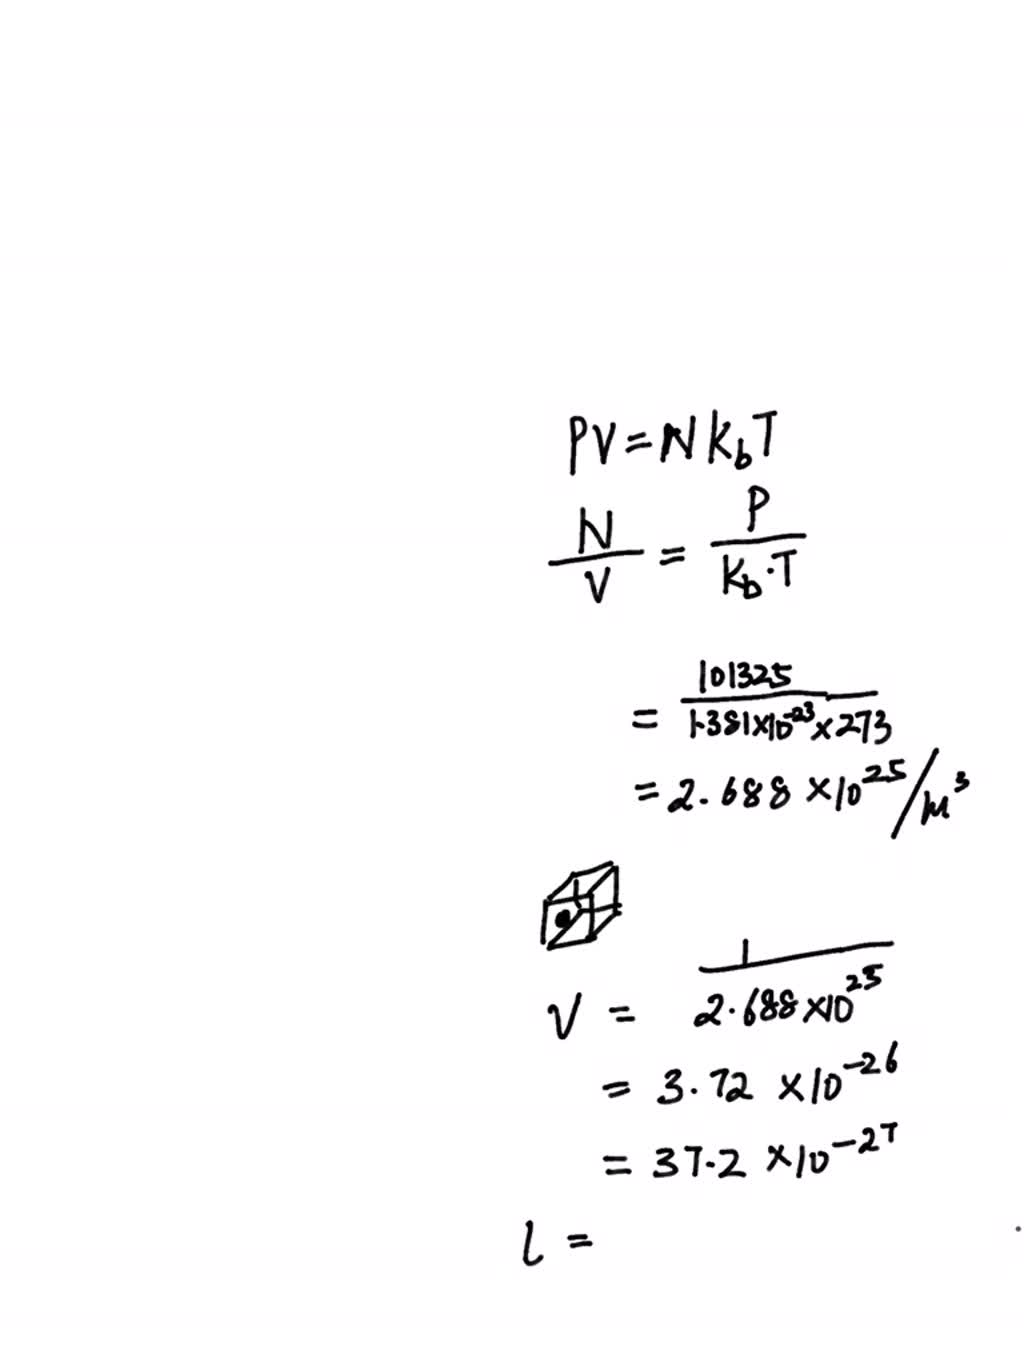 PV = N K_b T
N/V = P/(K_b · T)
= 101325/(1.381×10^-23 × 273)
= 2.688 × 10^25 / m^3
V = 1/(2.688×10^25)
= 3.72 × 10^-26
= 37.2 × 10^-27
l =